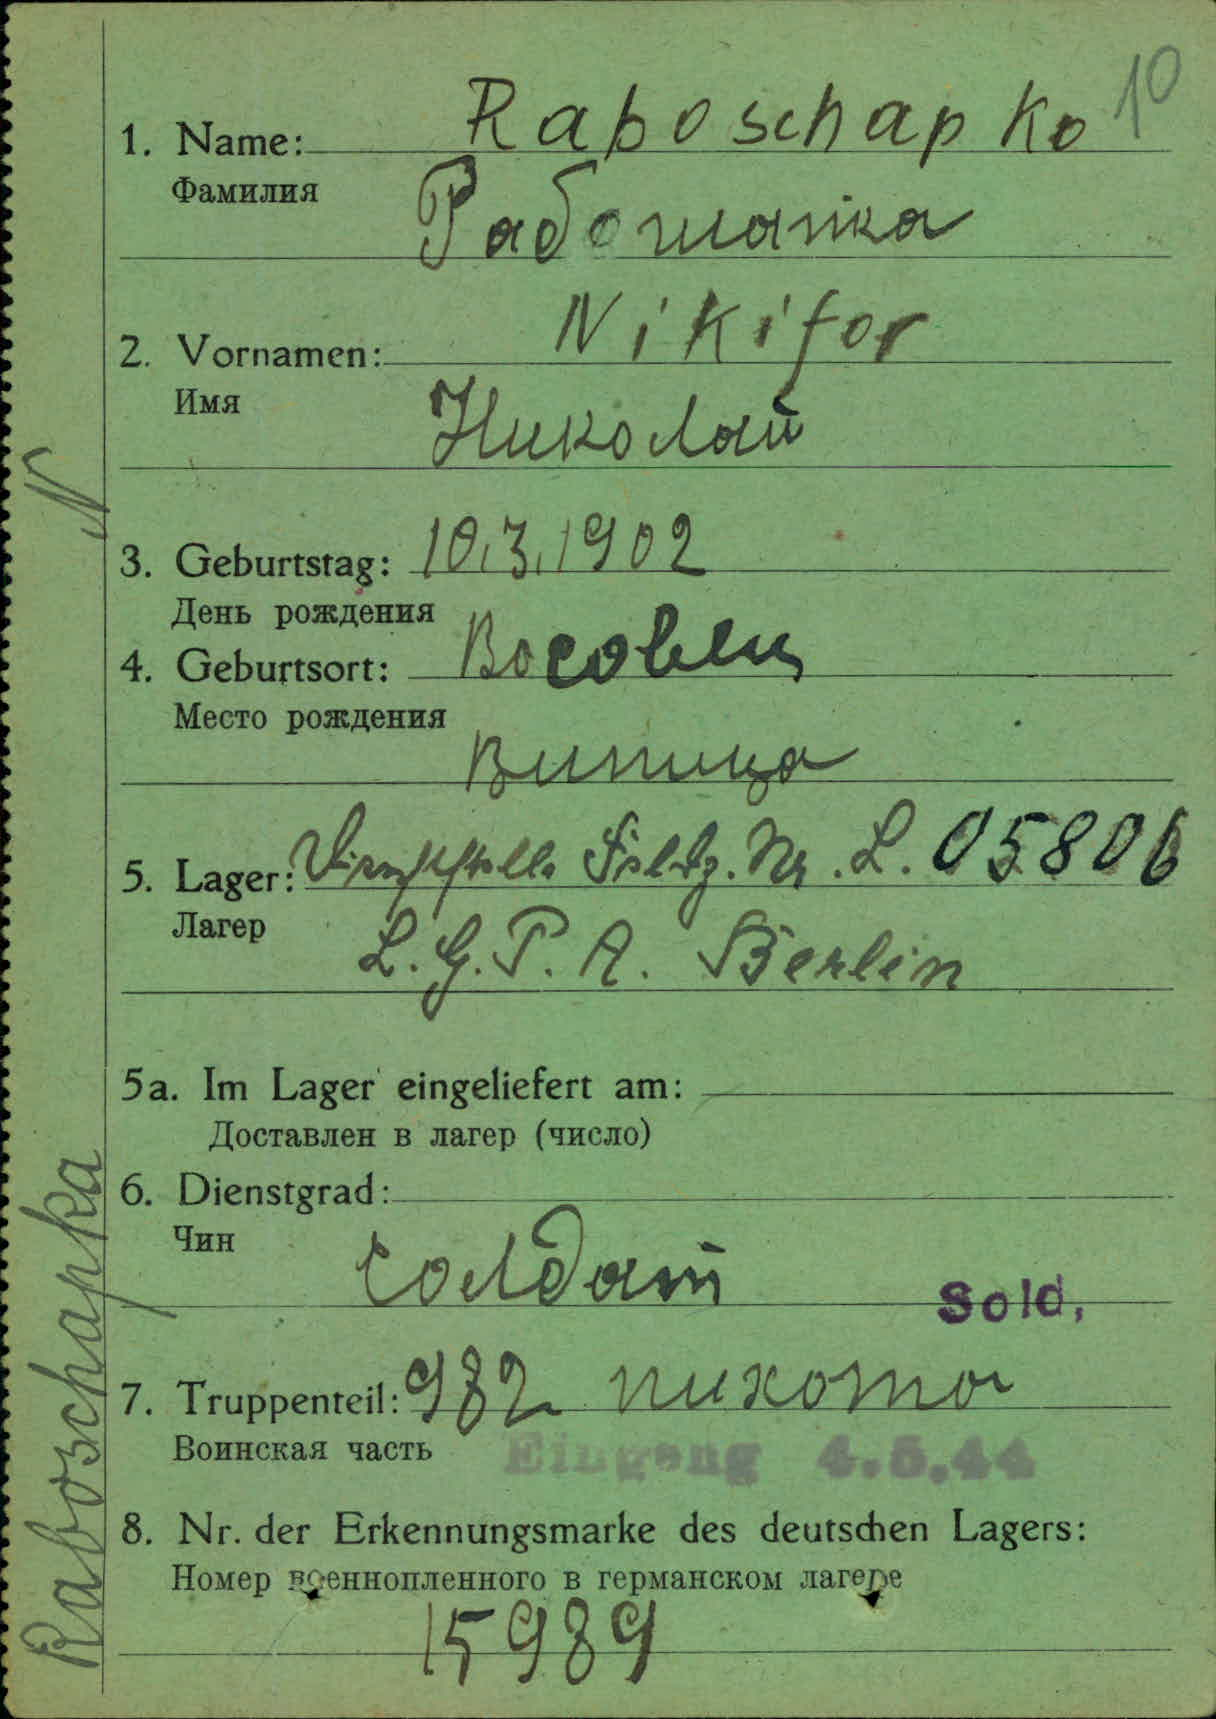 10
1. Name: Raboschapka
Фамилия
Рабошапка
2. Vornamen: Nikifor
Имя
Николай
3. Geburtstag: 10.3.1902
День рождения
4. Geburtsort: Восовец
Место рождения
Виница
5. Lager: Dienststelle Feldp. Nr. L. 05806
Лагер
L.G.P.A. Berlin
5a. Im Lager eingeliefert am:
Доставлен в лагер (число)
6. Dienstgrad:
Чин
солдат
Sold.
7. Truppenteil: 982 пихота
Воинская часть
Eingang 4.5.44
8. Nr. der Erkennungsmarke des deutschen Lagers:
Номер военнопленного в германском лагере
15989
Raboschapka N